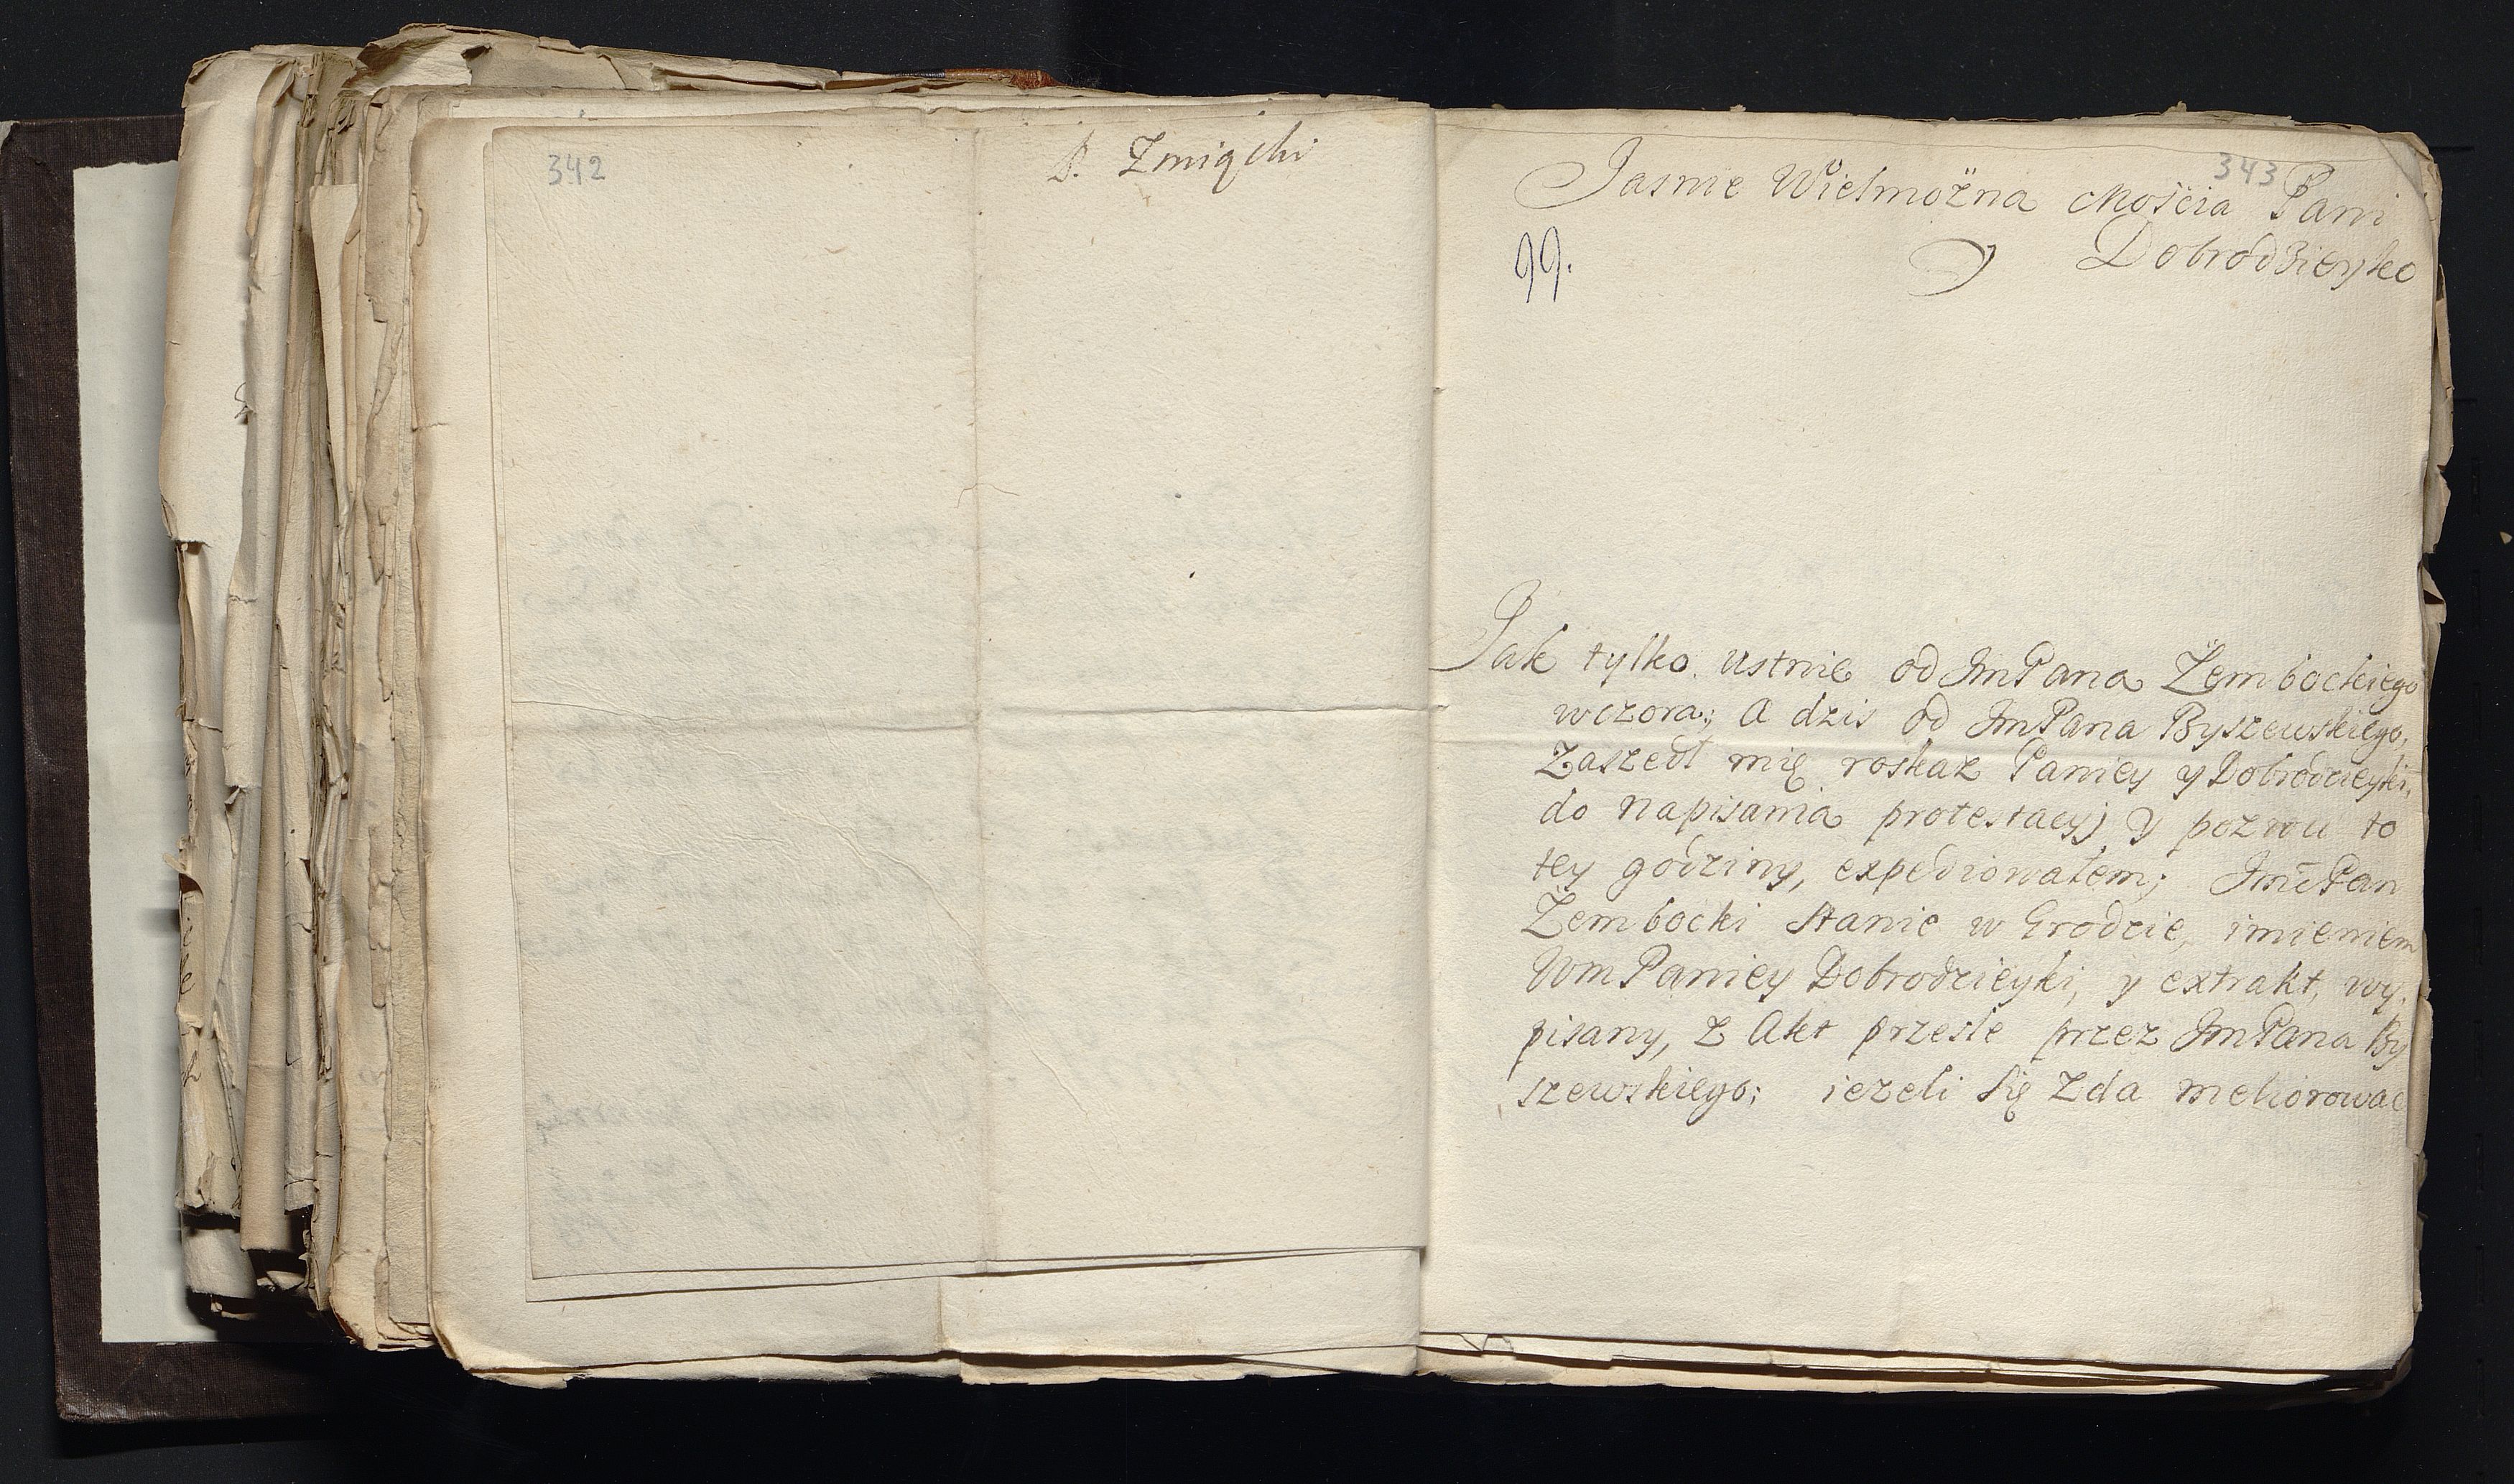 342
P. Zmiącki
343
Jasnie Wielmożna Mościa Pani
Dobrodzieyko
99.
Jak tylko ustnie od JmPana Zembockiego
wczora; A dzis od JmPana Byszewskiego,
Zaszedł mię roskaz Paniey y Dobrodzieyki,
do napisania protestacyj y pozwu to
tey godziny, expediowałem; JmćPan
Zembocki stanie w Grodzie, imieniem
WmPaniey Dobrodzieyki, y extrakt, wy,
pisany, z Akt przesle przez JmPana By
szewskiego; iezeli się zda meliorowac